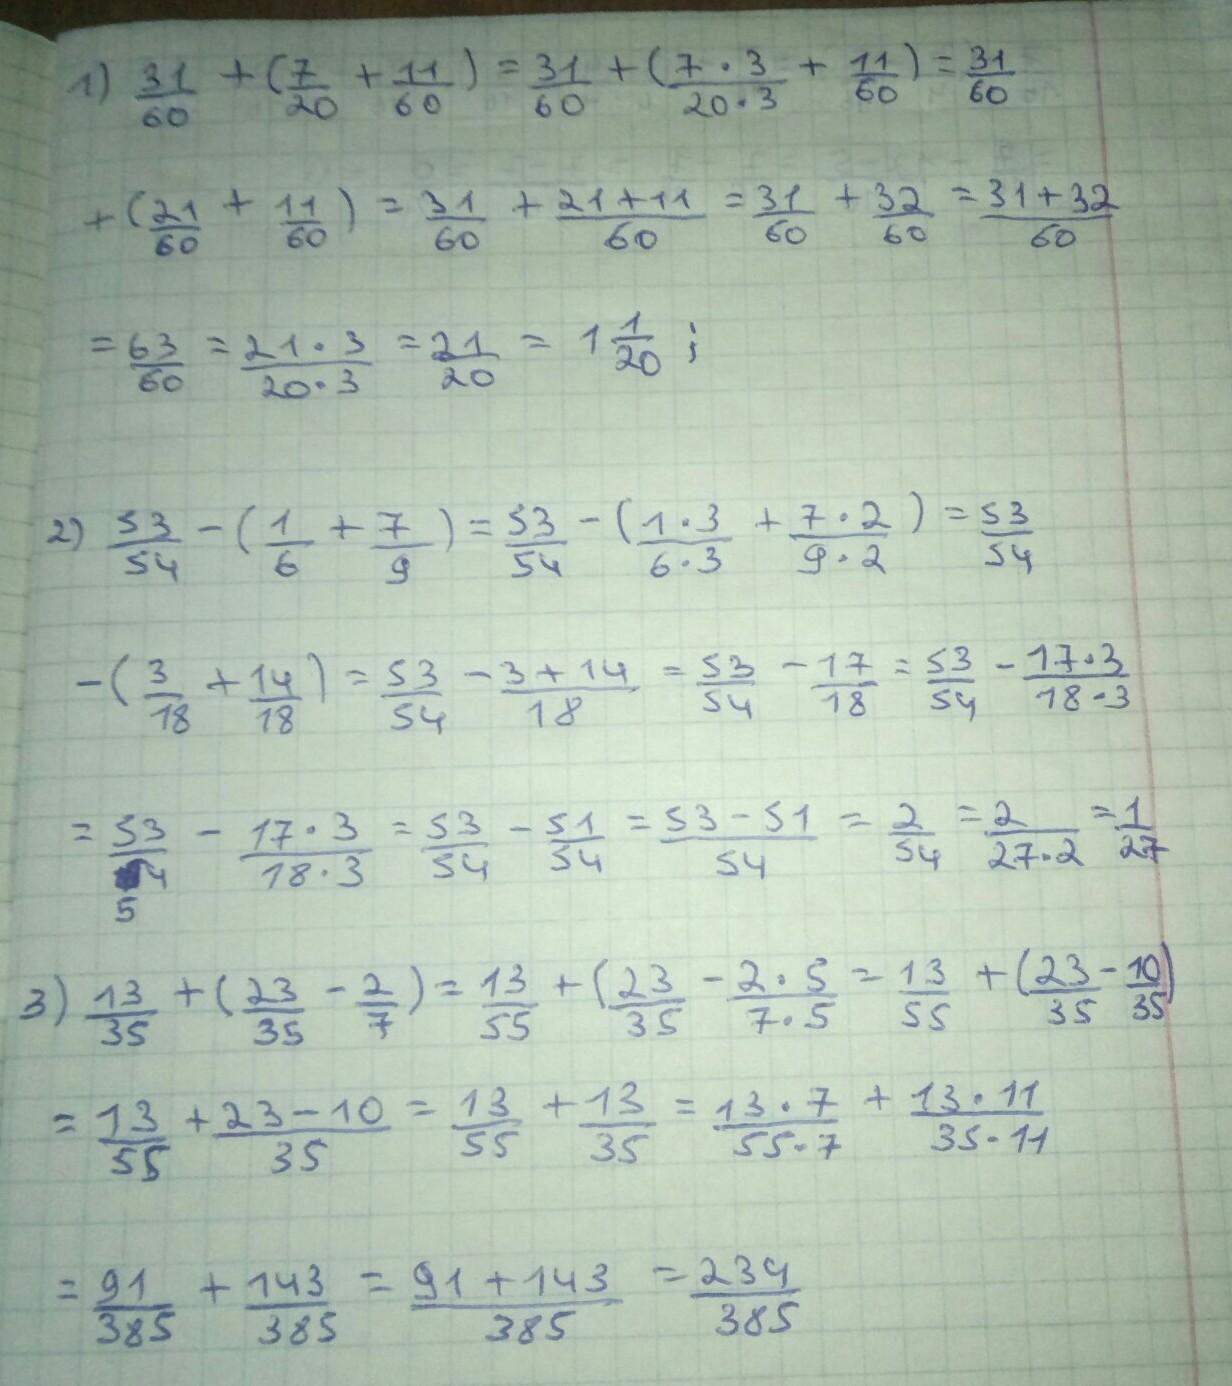 1) 31/60 + (7/20 + 11/60) = 31/60 + (7·3/20·3 + 11/60) = 31/60
+ (21/60 + 11/60) = 31/60 + 21+11/60 = 31/60 + 32/60 = 31+32/60
= 63/60 = 21·3/20·3 = 21/20 = 1 1/20 ;
2) 53/54 - (1/6 + 7/9) = 53/54 - (1·3/6·3 + 7·2/9·2) = 53/54
- (3/18 + 14/18) = 53/54 - 3+14/18 = 53/54 - 17/18 = 53/54 - 17·3/18·3
= 53/54 - 17·3/18·3 = 53/54 - 51/54 = 53-51/54 = 2/54 = 2/27·2 = 1/27
3) 13/35 + (23/35 - 2/7) = 13/55 + (23/35 - 2·5/7·5 = 13/55 + (23/35 - 10/35)
= 13/55 + 23-10/35 = 13/55 + 13/35 = 13·7/55·7 + 13·11/35·11
= 91/385 + 143/385 = 91+143/385 = 234/385